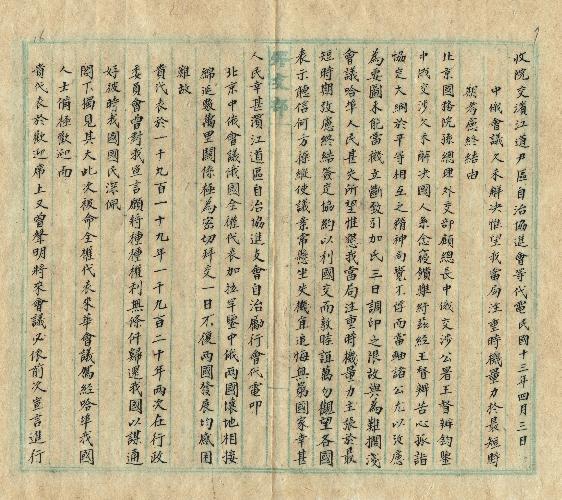 收院交濱江道尹區自治協進會等代電民國十三年四月三日
中俄會議久未解決惟望我當局注重時機量力於最短時
期考慮終結由
北京國務院孫總理外交部顧總長中俄交涉公署王督辦鈞鑒
中俄交涉久未解決國人系念寢饋難紓茲經王督辦苦心孤詣
協定大綱於平等相互之精神尚覺不悖而當軸諸公尤以汝應
為要圖未能當機立斷致引加氏三日調印之限故與為難擱淺
會議哈埠人民甚失所望惟懇我當局注重時機量力主張於最
短時期攷慮終結簽定協約以利國交而敦睦誼萬勿觀望各國
表示聽信何方操縱使議案常懸坐失機宜追悔無第國家幸甚
人民幸甚濱江道區自治協進支會自治勵行會代電叩
北京中俄會議俄國全權代表加拉罕鑒中俄兩國壤地相接
綿延數萬里關係極為密切拜交一日不復兩國發展均感困
難故
貴代表於一千九百一十九年一千九百二十年兩次在行政
委員會曾對我宣言願將種種權利無條件歸還我國以謀通
好彼時我國國民深佩
閣下獨見其大此次被命全權代表來華會議馬經哈埠我國
人士備極歡迎而
貴代表於歡迎席上又曾聲明將來會議必依前次宣言進行
外交部